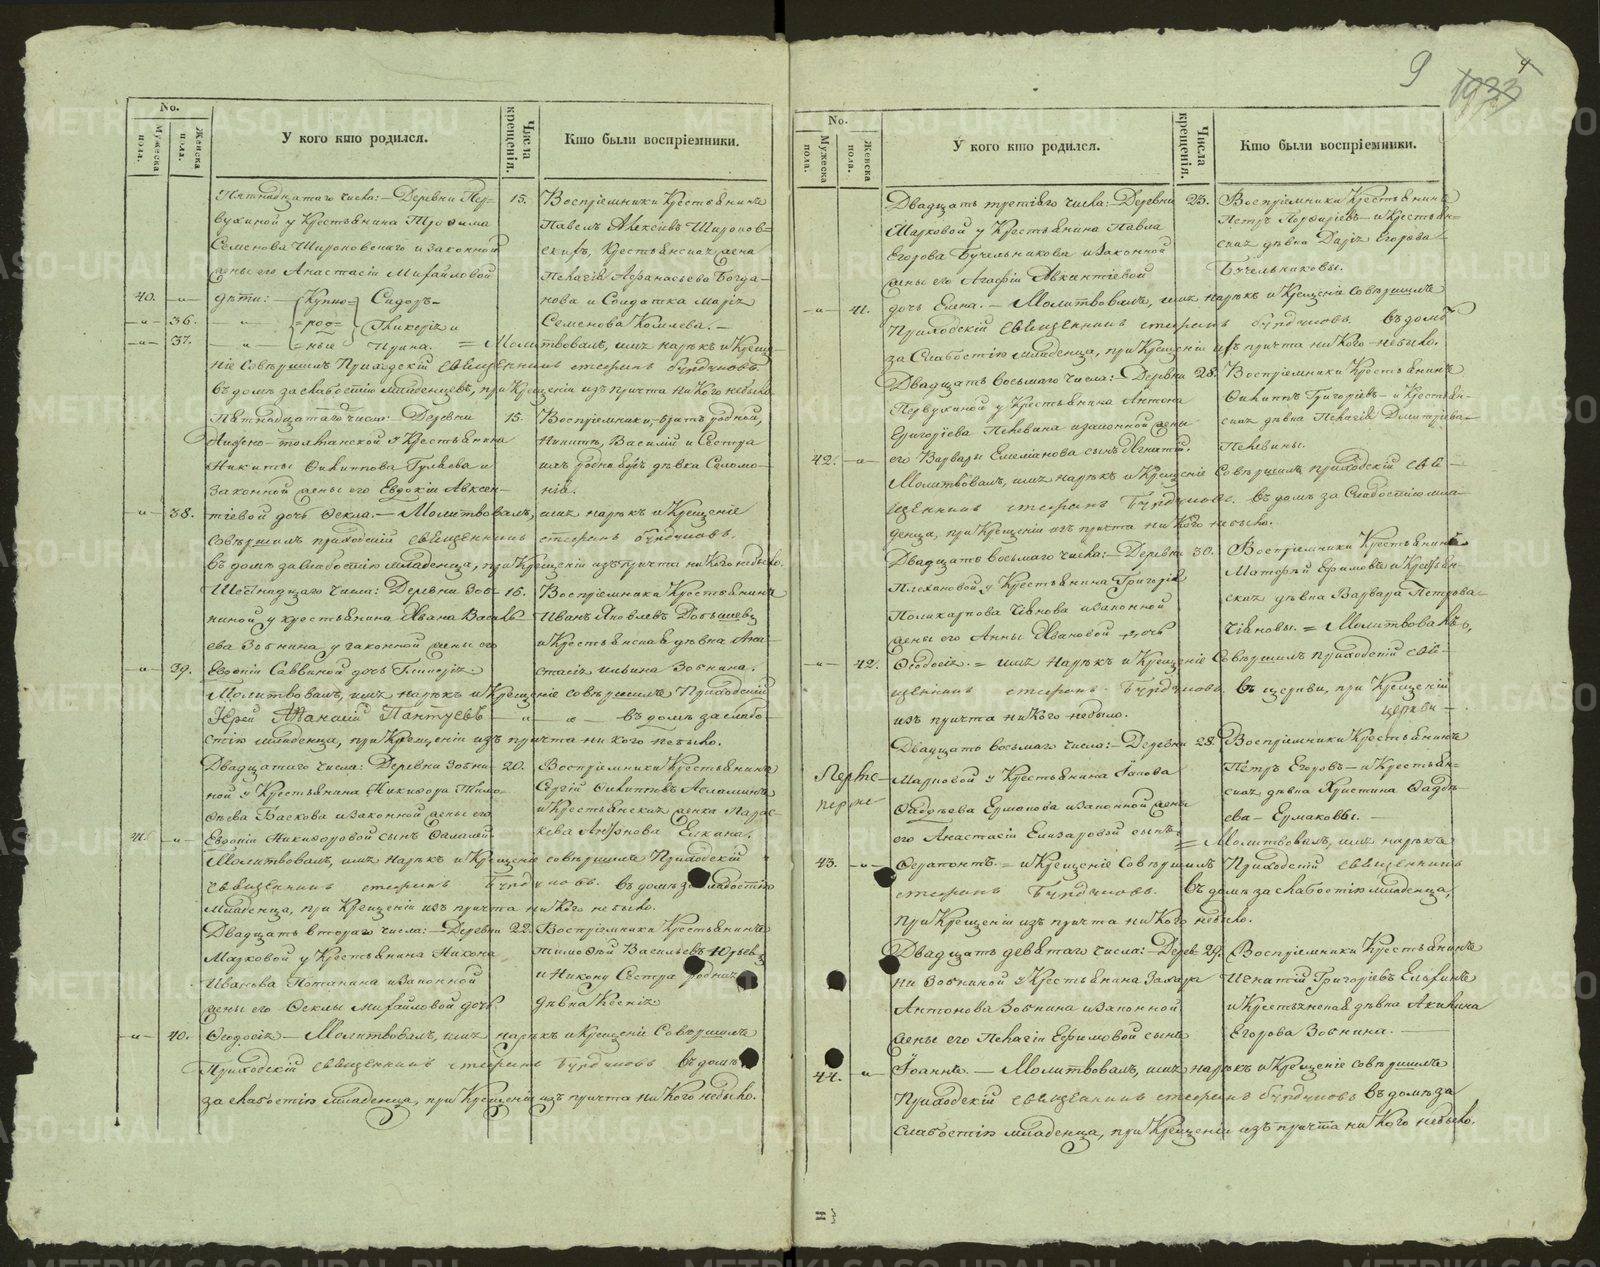 9
1933
4
No.
Мужеска пола.
Женска пола.
У кого кто родился.
Числа крещенія.
Кто были воспріемники.
Пятнадцатаго числа: — Деревни Пер-
вухиной у Крестьянина Трофима
Семенова Широковскаго и законной
жены его Анастасіи Михайловой
40. -"- дѣти: — Купно= Сидоръ-
-"- 36. -"- =род= Гликерія и
-"- 37. -"- =ные Ирина. = Молитвовалъ, имя нарѣкъ и Креще-
ніе совѣршилъ Приходскій священникъ
въ домѣ за слабостію младенцевъ, при Крещеніи изъ причта ни кого небыло.
15. Воспріемники Крестьянинъ
Павелъ Алексѣевъ Широков-
скихъ, Крестьянская жена
Пелагія Афанасьева Богда-
нова и Солдатка Марія
Семенова Комлева. —
Пятнадцатаго числа: Деревни
у Крестьянина
Никиты Филиппова Гуляева и
законной жены его Евдокіи Авксен-
-"- 38. тіевой дочь Фекла. — Молитвовалъ, имя нарѣкъ и Крещеніе
совѣршилъ приходскій священникъ
въ домѣ за слабостію младенца, при Крещеніи изъ причта ни кого небыло.
15. Воспріемники, братъ родной,
Никиты, Василій и Сестра
ихъ родная дѣвка Соломо-
нія.
Шестнадцаго Числа: Деревни Зоб-
ниной у крестьянина Ивана Василь-
ева Зобнина у законной жены его
-"- 39. Евфиміи Саввиной дочь Гликерія.
Молитвовалъ, имя нарѣкъ и Крещеніе совѣршилъ Приходскій
Іерей Афанасій Пантуевъ -"- -"- въ домѣ за слабо-
стію младенца, при Крещеніи изъ причта ни кого небыло.
16. Воспріемники Крестьянинъ
Иванъ Яковлевъ
и Крестьянская дѣвка Ана-
стасія Ильина Зобнина.
Двадцатаго числа: Деревни Зобни-
ной у Крестьянина Никифора Тимо-
фѣева Баскова и законной жены его
41. -"- Евфиміи Никифоровой сынъ
Молитвовалъ, имя нарѣкъ и Крещеніе совѣршилъ Приходскій
священникъ въ домѣ за слабостію
младенца, при Крещеніи изъ причта ни кого небыло.
20. Воспріемники Крестьянинъ
Сергій Филипповъ
и Крестьянская женка Парас-
кева Антонова Елкина.
Двадцать втораго числа: — Деревни
Марковой у Крестьянина Никона
Иванова Потанина и законной
жены его Феклы Михайловой дочь
-"- 40. Феодосія — Молитвовалъ, имя нарѣкъ и Крещеніе Совѣршилъ
Приходскій священникъ въ домѣ
за слабостію младенца, при Крещеніи изъ причта ни кого небыло.
22. Воспріемники Крестьянинъ
Тимофей Васильевъ Юрьевъ
и Никону Сестра родная
дѣвка Ксенія
No.
Мужеска пола.
Женска пола.
У кого кто родился.
Числа крещенія.
Кто были воспріемники.
Двадцать третіяго числа: — Деревни
Марковой у Крестьянина Павла
Егорова Бучельникова и законной
жены его Агафіи Авкентіевой
-"- 41. дочь Елена. — Молитвовалъ, имя нарѣкъ и Крещеніе совѣршилъ
Приходскій священникъ въ домѣ
за Слабостію младенца, при Крещеніи изъ причта ни кого небыло.
23. Воспріемники Крестьянинъ
Петръ Порфиріевъ — и Крестьян-
ская дѣвка Дарія Егорова
Бучельниковы.
Двадцать восьмаго числа: — Деревни
Первухиной у Крестьянина Антона
Григоріева Пелевина и законной жены
42. -"- его Варвары Емеліанова сынъ Игнатій.
Молитвовалъ, имя нарѣкъ и Крещеніе Совѣршилъ приходскій свя-
щенникъ въ домѣ за Слабостію мла-
денца, при Крещеніи изъ причта ни кого небыло.
28. Воспріемники Крестьянинъ
Филиппъ Григоріевъ — и Крестьян-
ская дѣвка Пелагія Дмитріева
Пелевины.
Двадцать восьмаго числа: — Деревни
Плехановой у Крестьянина Григорія
Поликарпова и законной
жены его Анны Ивановой дочь
-"- 42. Феодосія. = имя нарѣкъ и Крещеніе Совѣршилъ приходскій свя-
щенникъ въ церкви, при Крещеніи
изъ причта ни кого небыло. церкви
30. Воспріемники Крестьянинъ
Матфей Ефимовъ и Крестьян-
ская дѣвка Варвара Петрова
= Молитвовалъ,
Двадцать восьмаго числа: — Деревни
Марковой у Крестьянина Іакова
Фадѣева Ермакова и законной жены
его Анастасіи Елизаровой сынъ = Молитвовалъ, имя нарѣкъ
43. -"- Ферапонтъ. = и Крещеніе Совѣршилъ Приходскій священникъ
въ домѣ за слабостію младенца,
при Крещеніи изъ причта ни кого небыло.
28. Воспріемники Крестьянинъ
Петръ Егоровъ — и Крестьян-
ская дѣвка Христина Фадѣ-
ева — Ермаковы. —
Двадцать девятаго числа: — Дерев-
ни Зобниной у Крестьянина Захара
Антонова Зобнина и законной
жены его Пелагіи Ефимовой сынъ
44. -"- Іоаннъ. — Молитвовалъ, имя нарѣкъ и Крещеніе совѣршилъ
Приходскій священникъ въ домѣ за
Слабостію младенца, при Крещеніи изъ причта ни кого небыло.
29. Воспріемники Крестьянинъ
Игнатій Григоріевъ
и Крестьянская дѣвка Акилина
Егорова Зобнина. —
METRIKI.GASO-URAL.RU